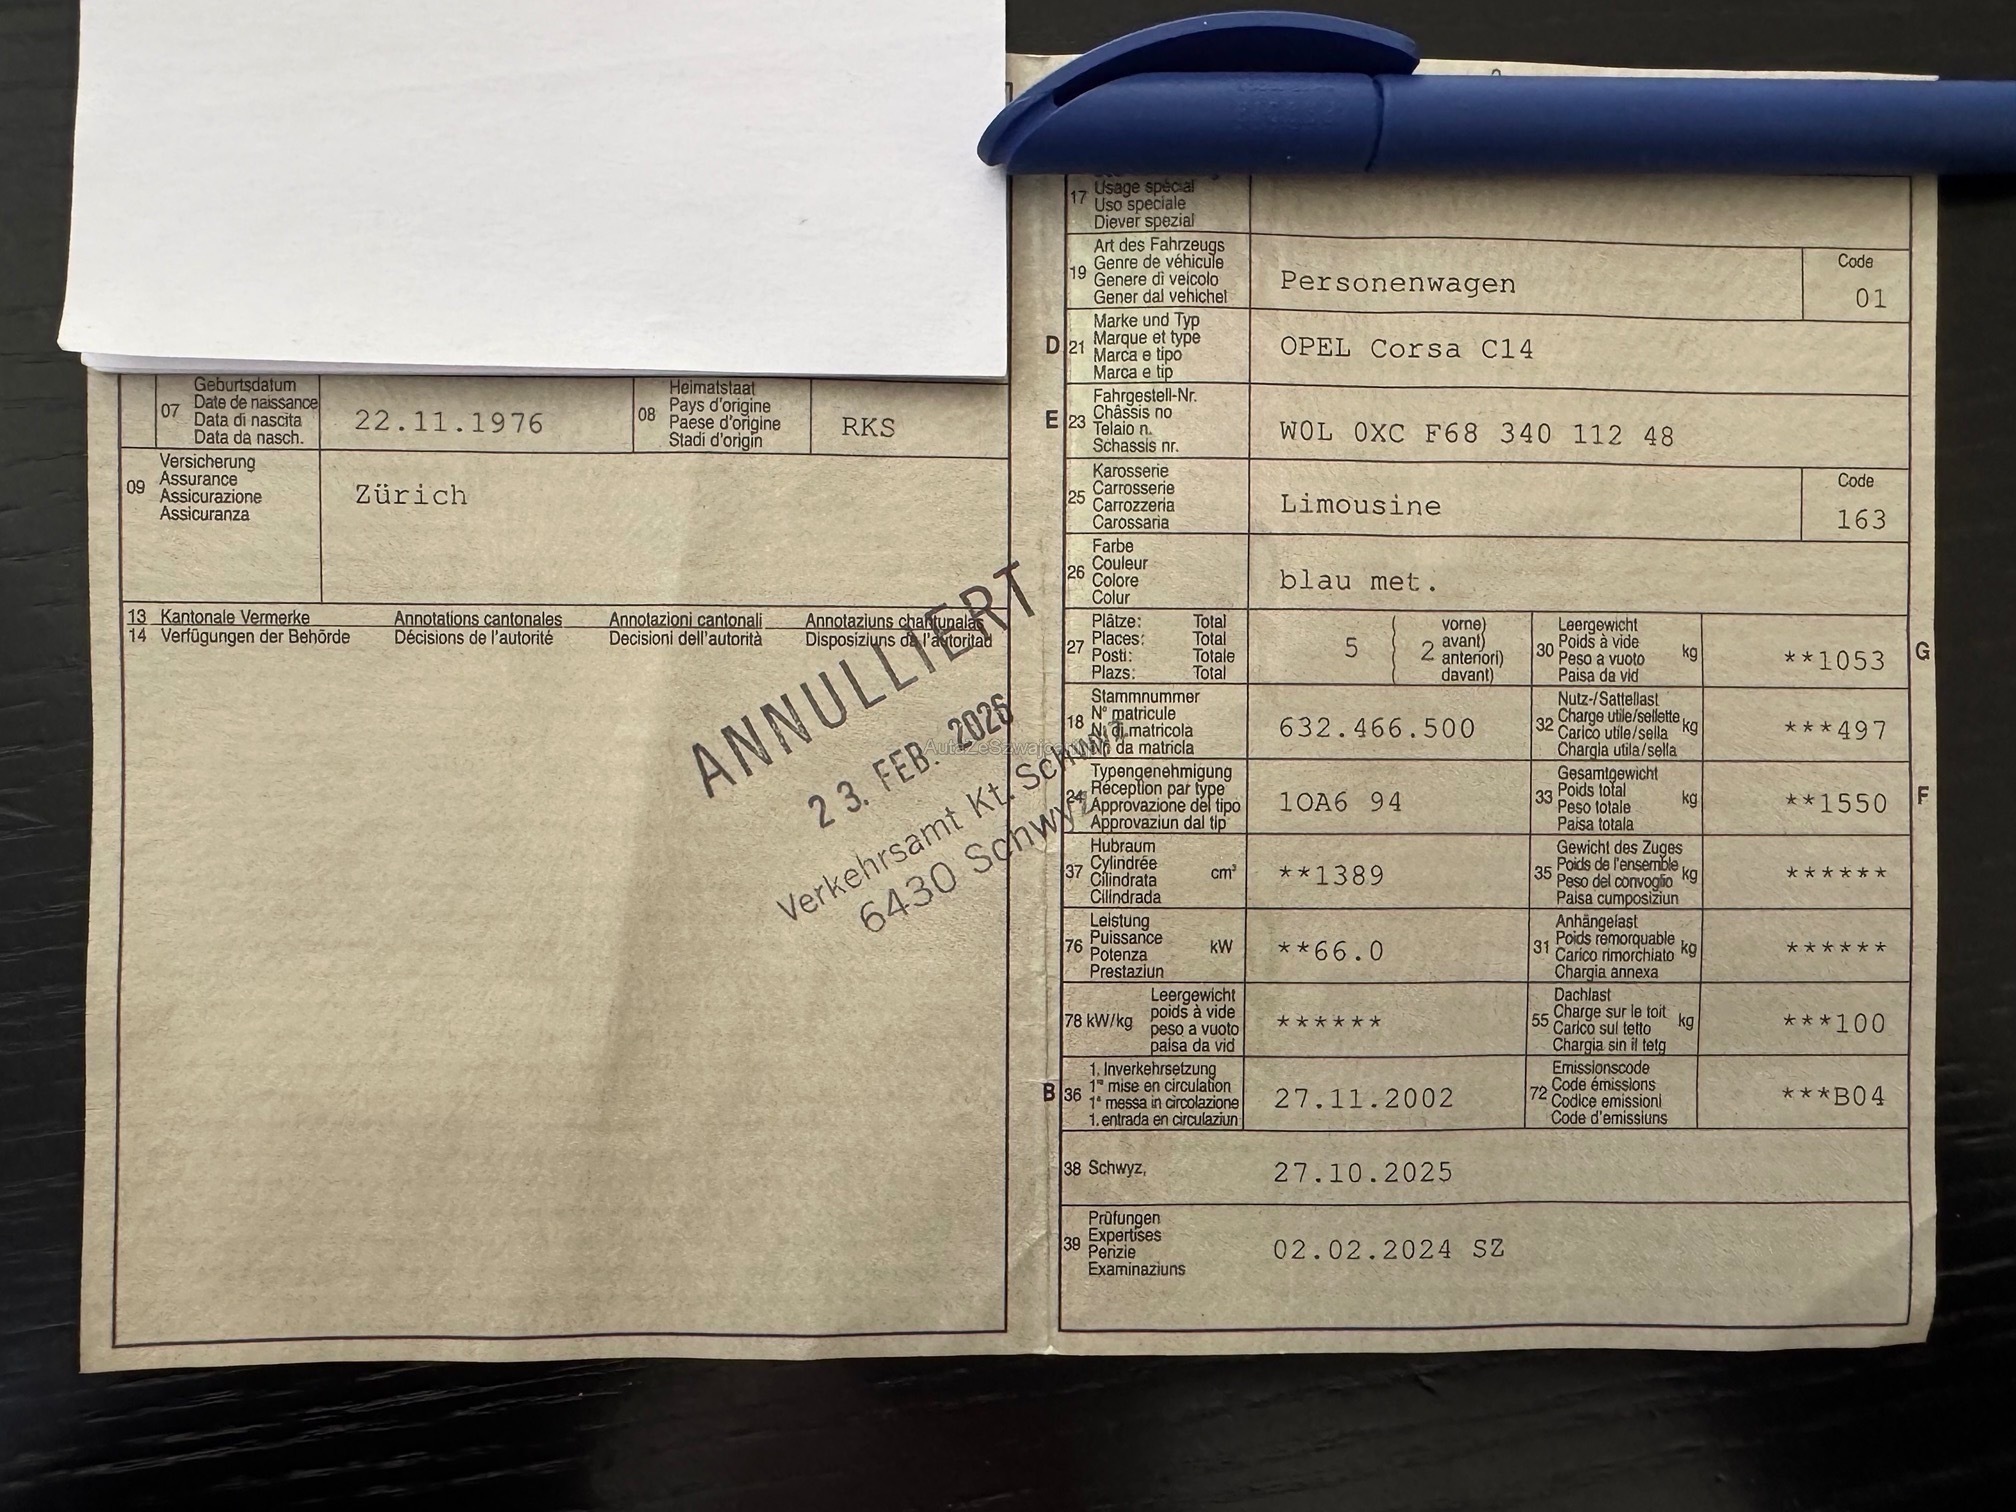 17 Usage spécial
Uso speciale
Diever spezial
19 Art des Fahrzeugs
Genre de véhicule
Genere di veicolo
Gener dal vehichel
Personenwagen
Code
01
D 21 Marke und Typ
Marque et type
Marca e tipo
Marca e tip
OPEL Corsa C14
E 23 Fahrgestell-Nr.
Châssis no
Telaio n.
Schassis nr.
W0L 0XC F68 340 112 48
25 Karosserie
Carrosserie
Carrozzeria
Carossaria
Limousine
Code
163
26 Farbe
Couleur
Colore
Colur
blau met.
27 Plätze: Total
Places: Total
Posti: Totale
Plazs: Total
5 ( 2 vorne)
avant)
anteriori)
davant)
30 Leergewicht
Poids à vide
Peso a vuoto
Paisa da vid
kg
**1053
G
18 Stammnummer
N° matricule
N. di matricola
Nr. da matricla
632.466.500
32 Nutz-/Sattellast
Charge utile/sellette
Carico utile/sella
Chargia utila/sella
kg
***497
24 Typengenehmigung
Réception par type
Approvazione del tipo
Approvaziun dal tip
1OA6 94
33 Gesamtgewicht
Poids total
Peso totale
Paisa totala
kg
**1550
F
37 Hubraum
Cylindrée
Cilindrata
Cilindrada
cm³
**1389
35 Gewicht des Zuges
Poids de l'ensemble
Peso del convoglio
Paisa cumposiziun
kg
******
76 Leistung
Puissance
Potenza
Prestaziun
kW
**66.0
31 Anhängelast
Poids remorquable
Carico rimorchiato
Chargia annexa
kg
******
78 kW/kg Leergewicht
poids à vide
peso a vuoto
paisa da vid
******
55 Dachlast
Charge sur le toit
Carico sul tetto
Chargia sin il tetg
kg
***100
B 36 1. Inverkehrsetzung
1re mise en circulation
1a messa in circolazione
1. entrada en circulaziun
27.11.2002
72 Emissionscode
Code émissions
Codice emissioni
Code d'emissiuns
***B04
38 Schwyz,
27.10.2025
39 Prüfungen
Expertises
Perizie
Examinaziuns
02.02.2024 SZ
07 Geburtsdatum
Date de naissance
Data di nascita
Data da nasch.
22.11.1976
08 Heimatstaat
Pays d'origine
Paese d'origine
Stadi d'origin
RKS
09 Versicherung
Assurance
Assicurazione
Assicuranza
Zürich
13 Kantonale Vermerke Annotations cantonales Annotazioni cantonali Annotaziuns chantunalas
14 Verfügungen der Behörde Décisions de l'autorité Decisioni dell'autorità Disposiziuns da l'autoritad
ANNULLIERT
23. FEB. 2026
Verkehrsamt Kt. Schwyz
6430 Schwyz